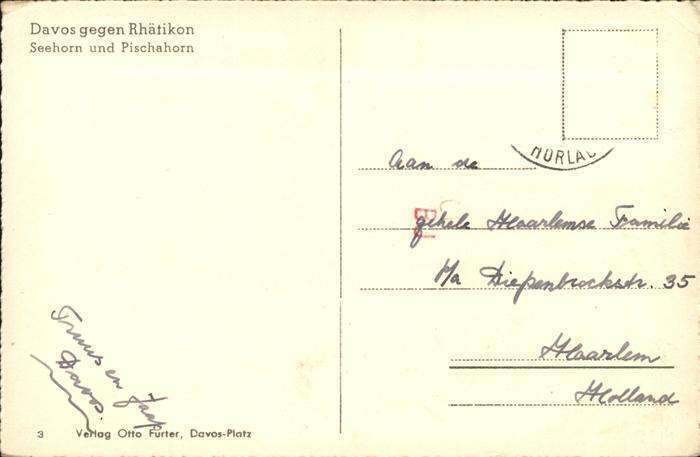 Davos gegen Rhätikon
Seehorn und Pischahorn
HÖRLAU
Aan de
gehele Haarlemse Familie
P/a Diepenbrockstr. 35
Haarlem
Holland
Truus en Jaap
Davos.
3 Verlag Otto Furter, Davos-Platz